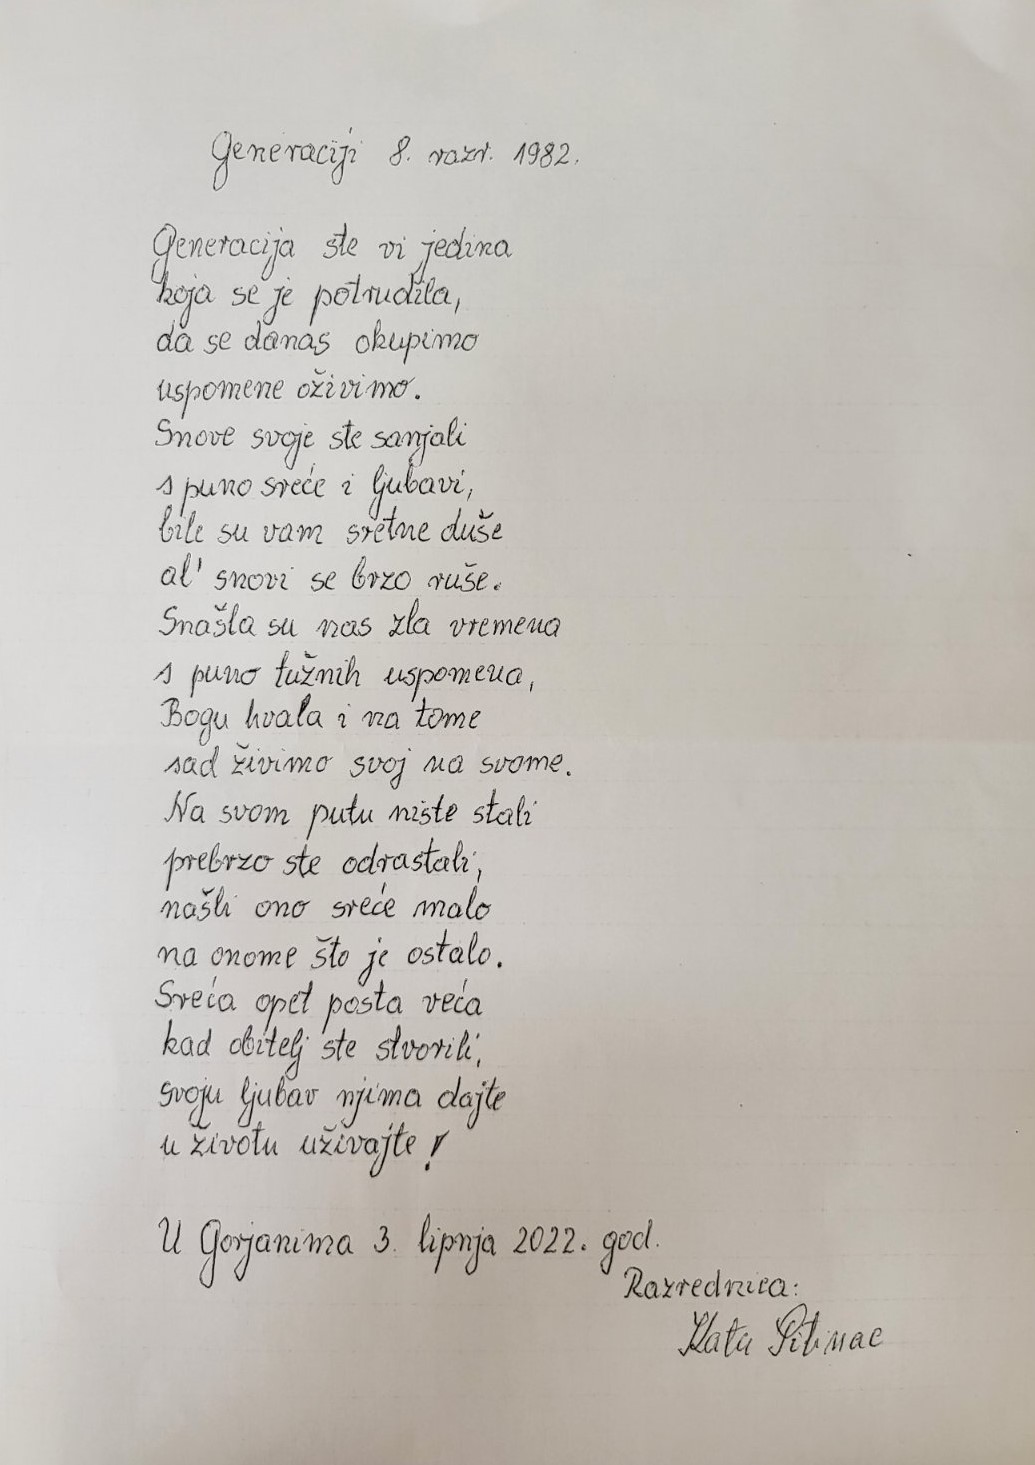 Generaciji 8. razr. 1982.
Generacija ste vi jedina
koja se je potrudila,
da se danas okupimo
uspomene oživimo.
Snove svoje ste sanjali
s puno sreće i ljubavi,
bile su vam sretne duše
al' snovi se brzo ruše.
Snašla su nas zla vremena
s puno tužnih uspomena,
Bogu hvala i na tome
sad živimo svoj na svome.
Na svom putu niste stali
prebrzo ste odrastali,
našli ono sreće malo
na onome što je ostalo.
Sreća opet posta veća
kad obitelj ste stvorili,
svoju ljubav njima dajte
u životu uživajte!
U Gorjanima 3. lipnja 2022. god.
Razrednica:
Kata